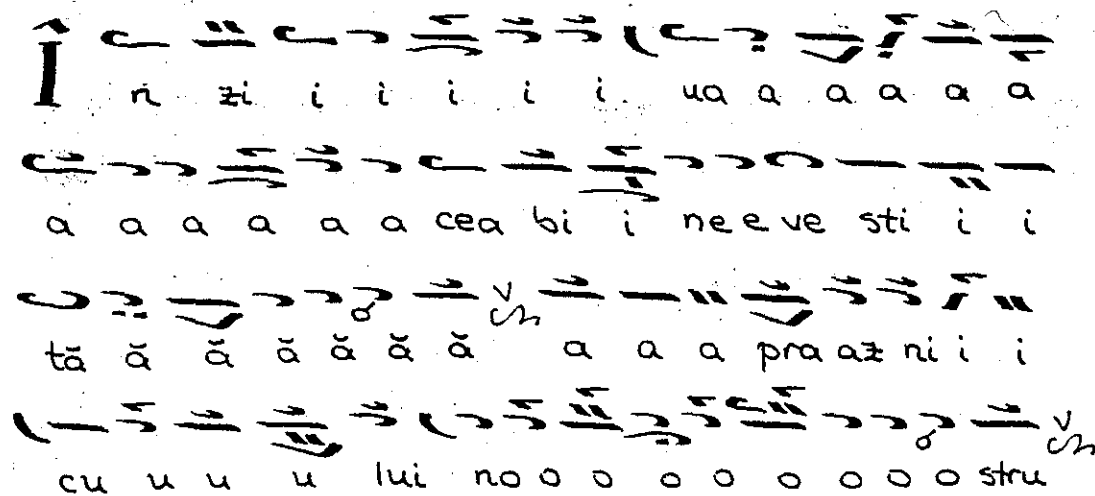 În zi i i i i i. ua a a a a a
a a a a a a cea bi i ne e ve sti i i
tă ă ă ă ă ă ă a a a pra az ni i i
cu u u u lui no o o o o o o o o stru